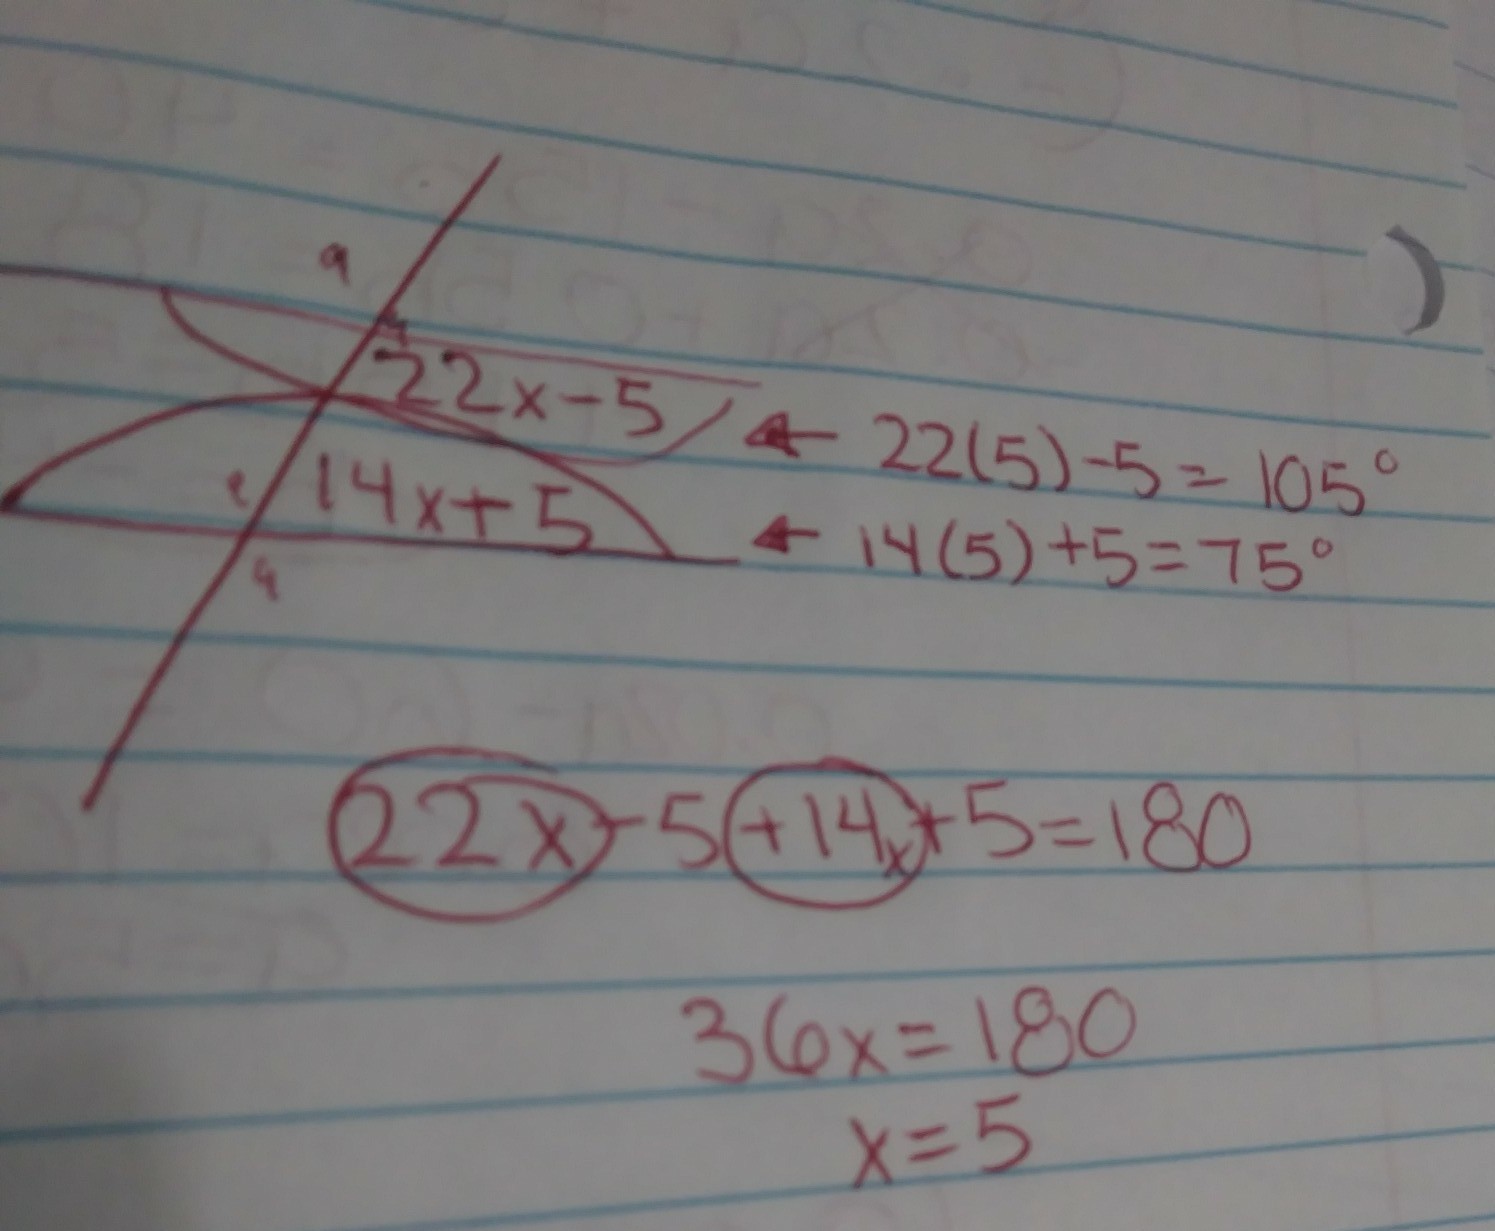 22x-5 ← 22(5)-5= 105°
14x+5 ← 14(5)+5=75°
22x-5+14x+5=180
36x=180
x=5